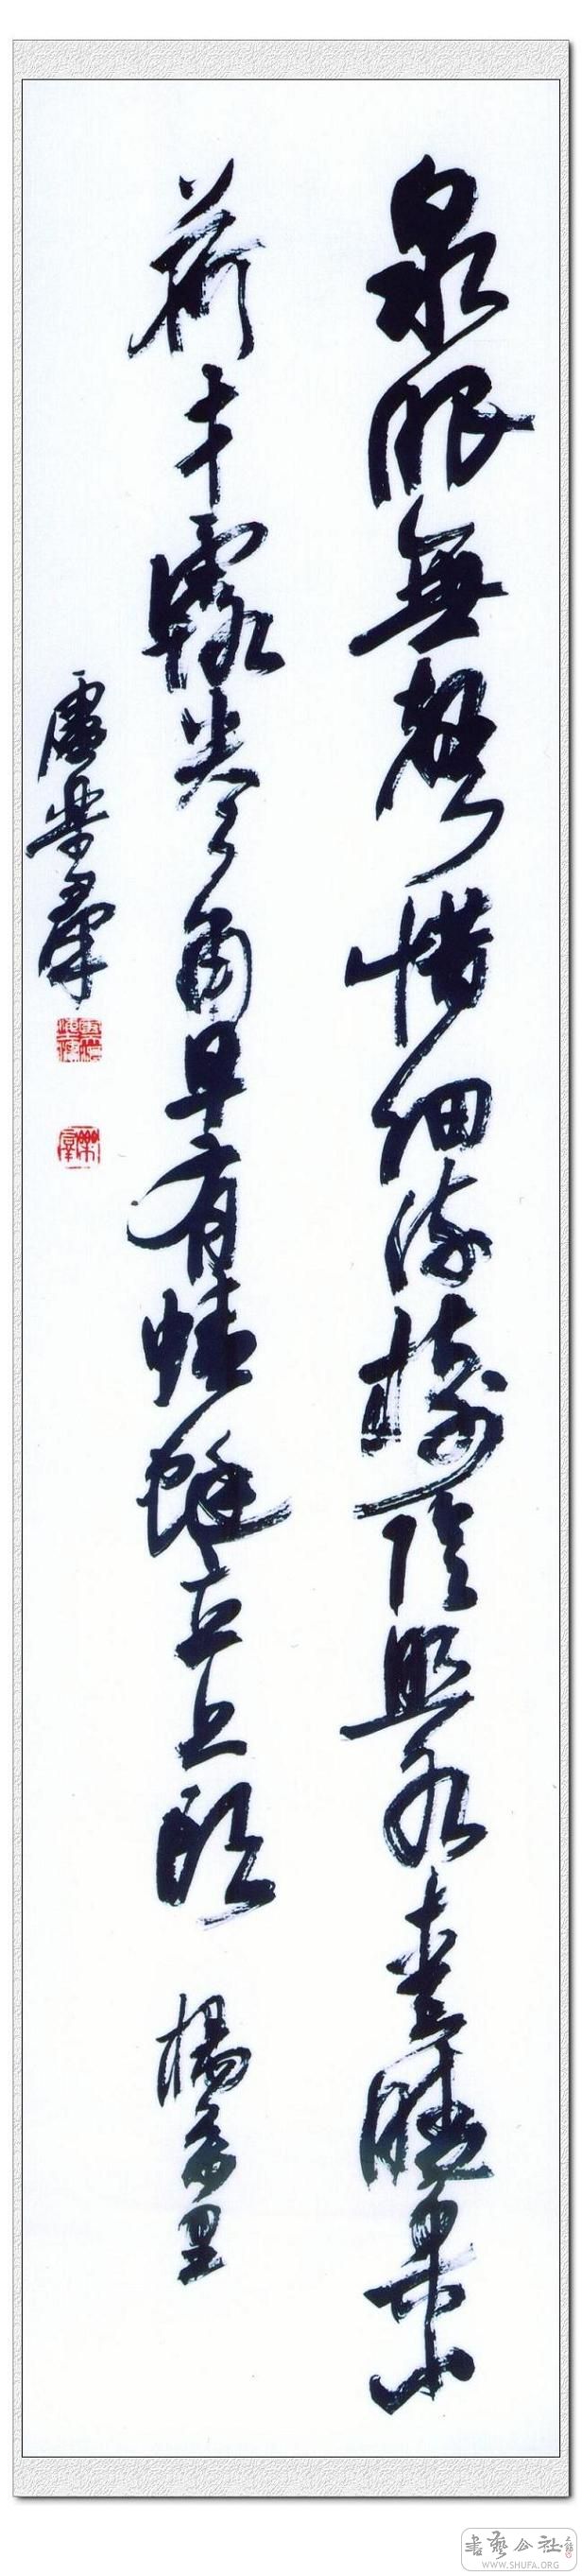 泉眼無聲惜細流樹陰照水愛晴柔小
荷才露尖尖角早有蜻蜓立上頭 楊萬里
樂羣
書藝公社
WWW.SHUFA.ORG